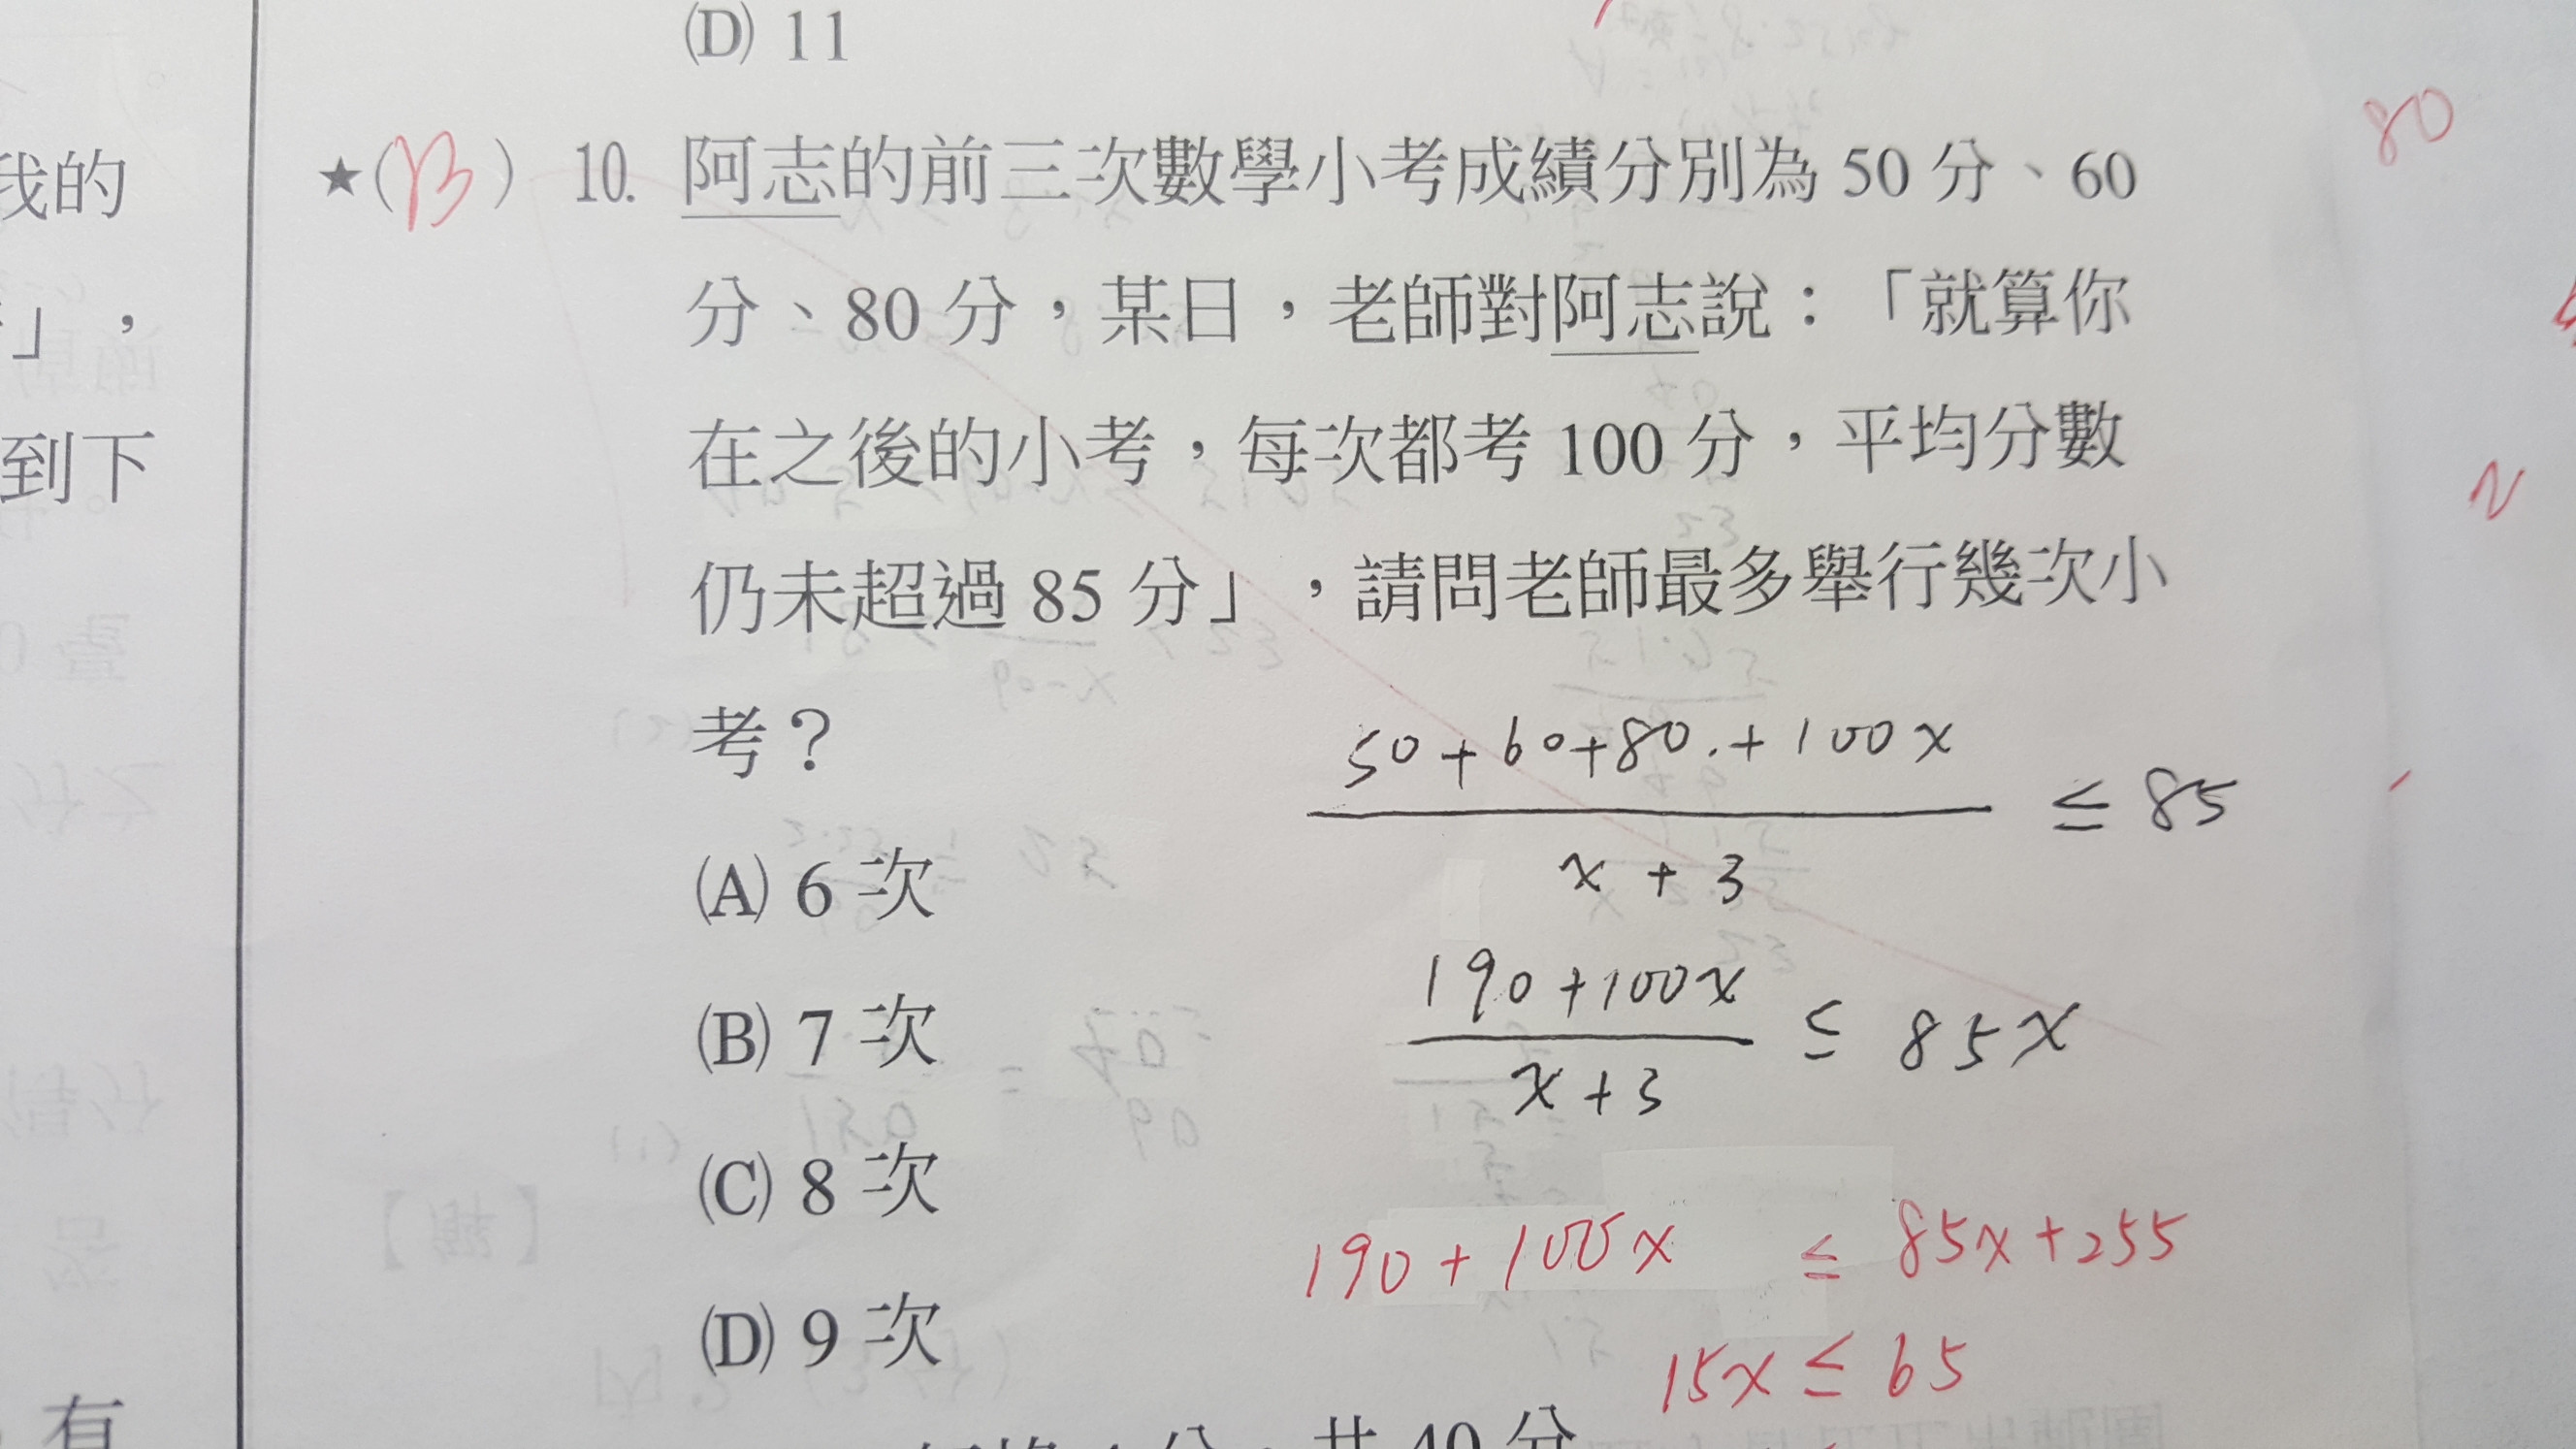 (D) 11
80
我的
★(B) 10. 阿志的前三次數學小考成績分別為 50 分、60
」,
分、80 分,某日,老師對阿志說:「就算你
到下
在之後的小考,每次都考 100 分,平均分數
仍未超過 85 分」,請問老師最多舉行幾次小
考?
50+60+80.+100x
≤ 85
x + 3
(A) 6 次
190+100x
≤ 85x
x+3
(B) 7 次
(C) 8 次
190+100x ≤ 85x+255
(D) 9 次
15x ≤ 65
有
共 40 分